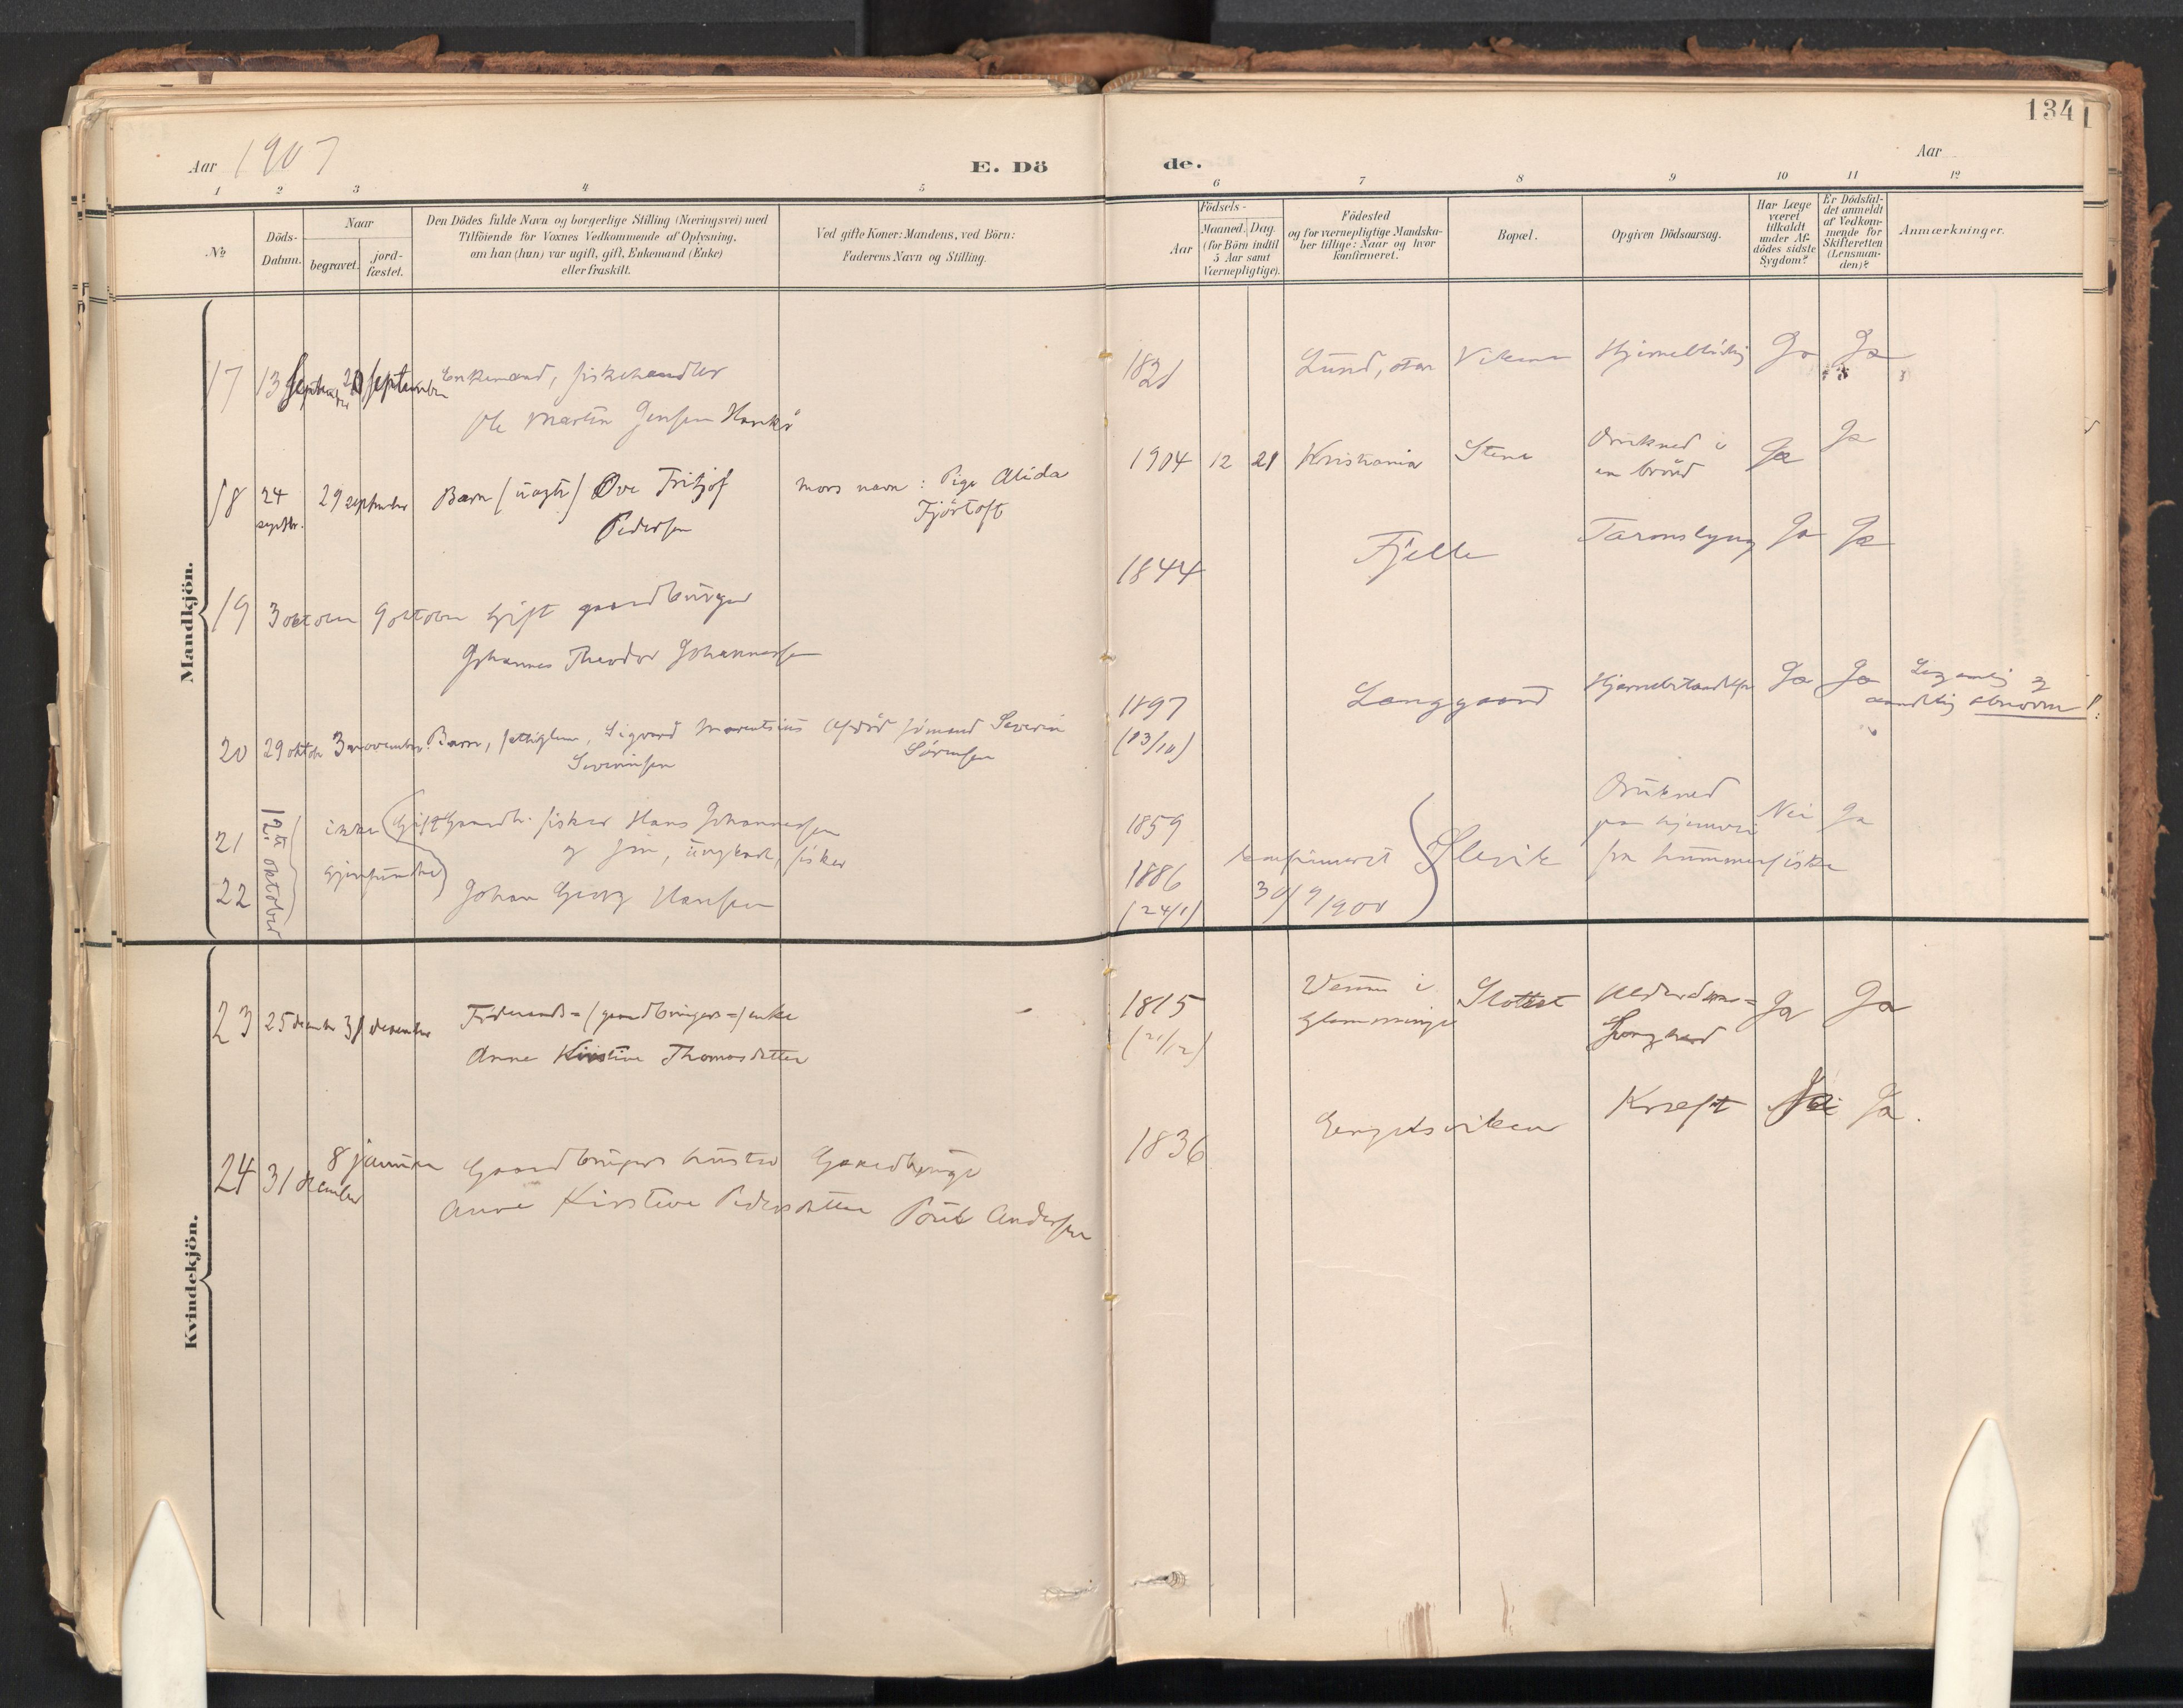 134
Aar 1907
E. Dö de.
Aar
1 2 3 4 5 6 7 8 9 10 11 12
№
Döds-
Datum.
Naar
begravet.
jord-
fæstet.
Den Dödes fulde Navn og borgerlige Stilling (Næringsvei) med
Tilföiende for Voxnes Vedkommende af Oplysning,
om han (hun) var ugift, gift, Enkemand (Enke)
eller fraskilt.
Ved gifte Koner: Mandens, ved Börn:
Faderens Navn og Stilling.
Födsels-
Aar
Maaned. Dag.
(for Börn indtil
5 Aar samt
Værnepligtige).
Födested
og for værnepligtige Mandska-
ber tillige: Naar og hvor
konfirmeret.
Bopæl.
Opgiven Dödsaarsag.
Har Læge
været
tilkaldt
under Af-
dödes sidste
Sygdom?
Er Dödsfal-
det anmeldt
af Vedkom-
mende for
Skifteretten
(Lensman-
den)?
Anmærkninger.
Mandkjön.
17 13 september 20 september Enkemand, fiskehandler
Ole Martin Jensen Hankö
Lund, Viken Ja Ja
18 24 septbr. 29 september Barn (uægte) Ove Fritjof
Pedersen
Mors navn: Pige Alida
Fjörtoft
1904 12 21 Kristiania Stene Druknet i
en brönd
Ja Ja
19 3 oktober 9 oktober Gift gaardbruger
Johannes Theodor Johannessen
1844 Fjelle Ja Ja
20 29 oktober 3 november Barn, Sigvard Marentius
Severinsen
Afdöd sömand Severin
Sörensen
1897
(13/10)
Langgaard Ja Ja
Legemlig og
aandelig abnorm!
21 12te oktober
ikke
gjenfundne
Gift Gaardbr. fisker Hans Johannessen
og sön, ungkarl, fisker
22 Johan Georg Hansen
1859
1886
(24/1)
konfirmeret
30/9/900
Slevik
Druknet
paa hjemvei
fra hummerfiske
Nei Ja
Kvindekjön.
23 25 december 31 december Föderaads- (gaardbrugers-) enke
Anne Kirstine Thomasdatter
1815
(21/12)
i
Glemminge
Slottet Alderdoms-
Ja Ja
24 31 december 8 januar Gaardbrugers hustru
Anne Kirstine Pedersdatter
Gaardbruger
Poul Andersen
1836 Engelsviken Kræft Nei Ja.